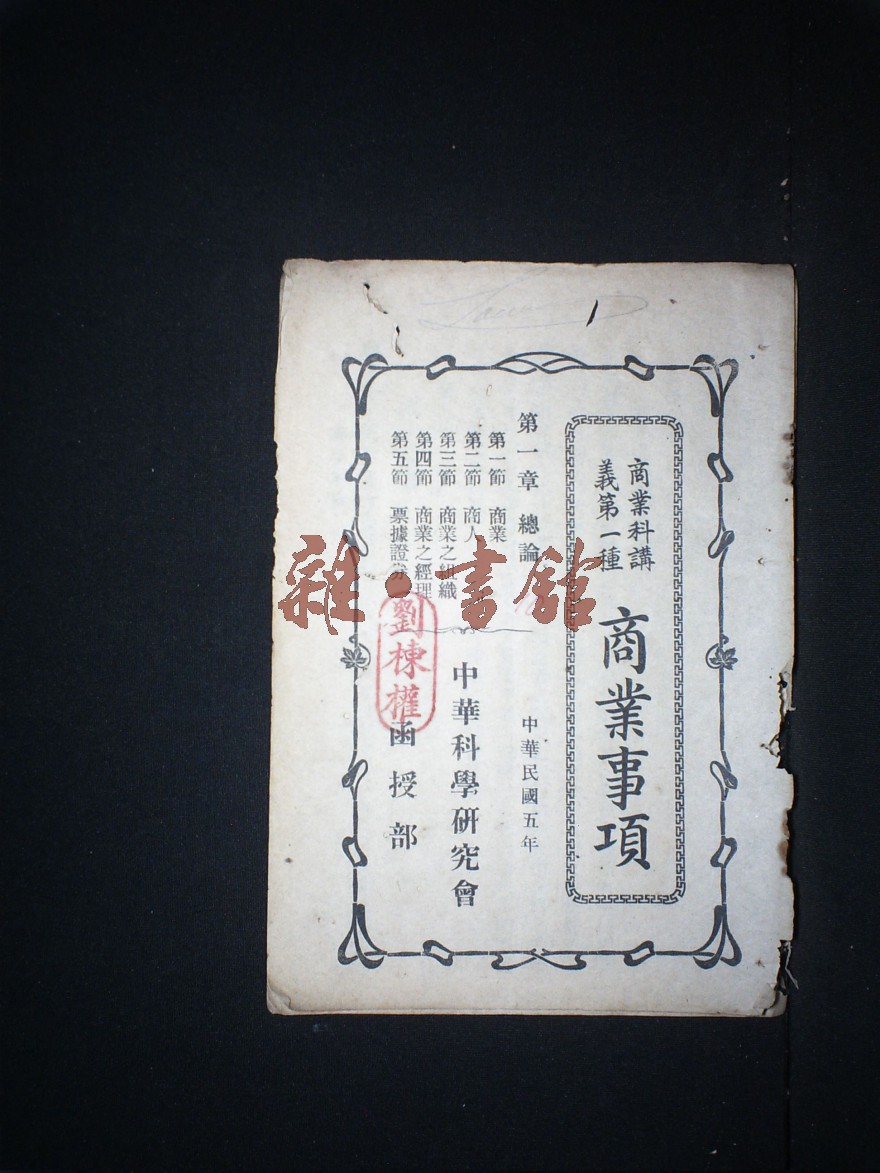 商業科講
義第一種
商業事項
第一章 總論
第一節 商業
第二節 商人
第三節 商業之組織
第四節 商業之經理
第五節 票據證券
中華民國五年
中華科學研究會
函授部
劉棟權
雜·書館